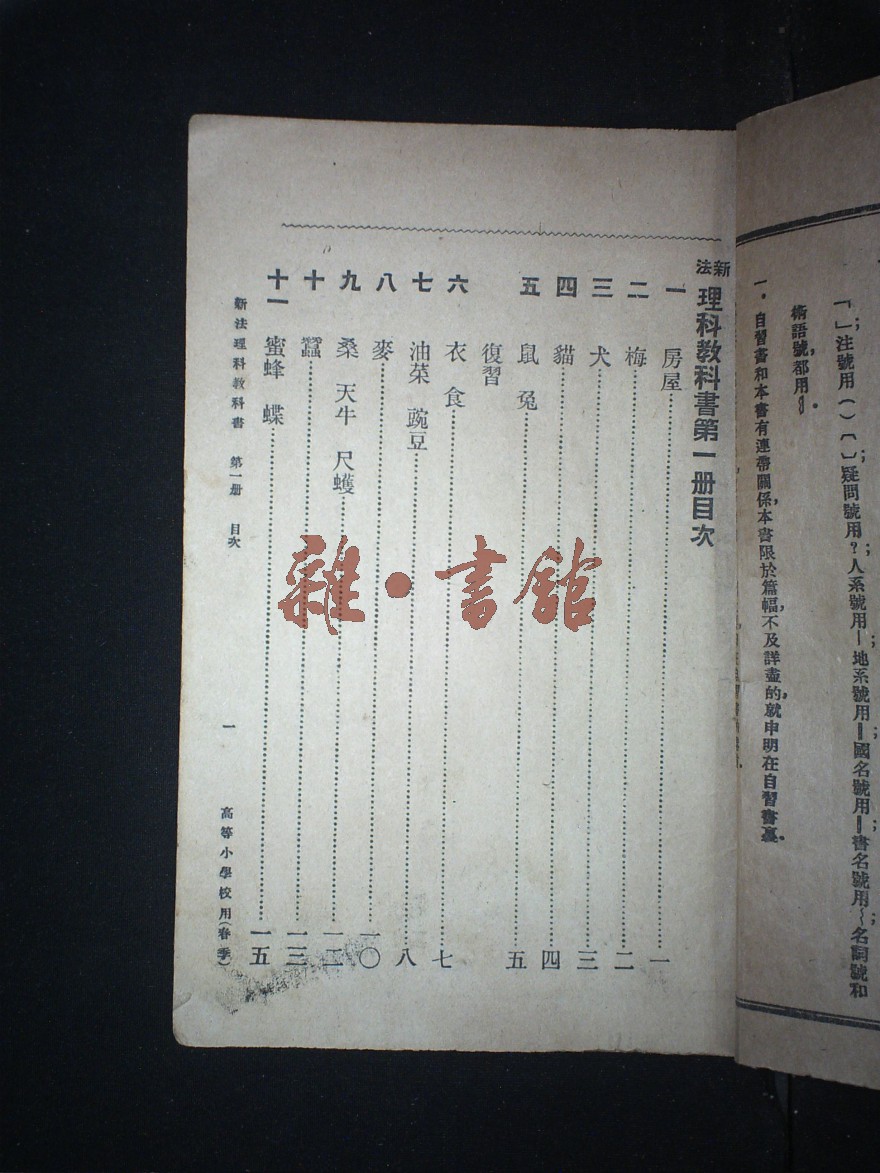 「」注號用（）〔〕疑問號用？人系號用—地系號用‖國名號用‖書名號用〜名詞號和
術語號都用
一．自習書和本書有連帶關係，本書限於篇幅，不及詳盡的，就申明在自習書裏．
新法理科教科書第一册目次
一　房屋……一
二　梅……二
三　犬……三
四　貓……四
五　鼠　兔……五
復習
六　衣　食……七
七　油菜　豌豆……八
八　麥……一〇
九　桑　天牛　尺蠖……一二
十　蠶……一三
十一　蜜蜂　蝶……一五
新法理科教科書　第一册　目次　一　高等小學校用（春季）
雜·書館